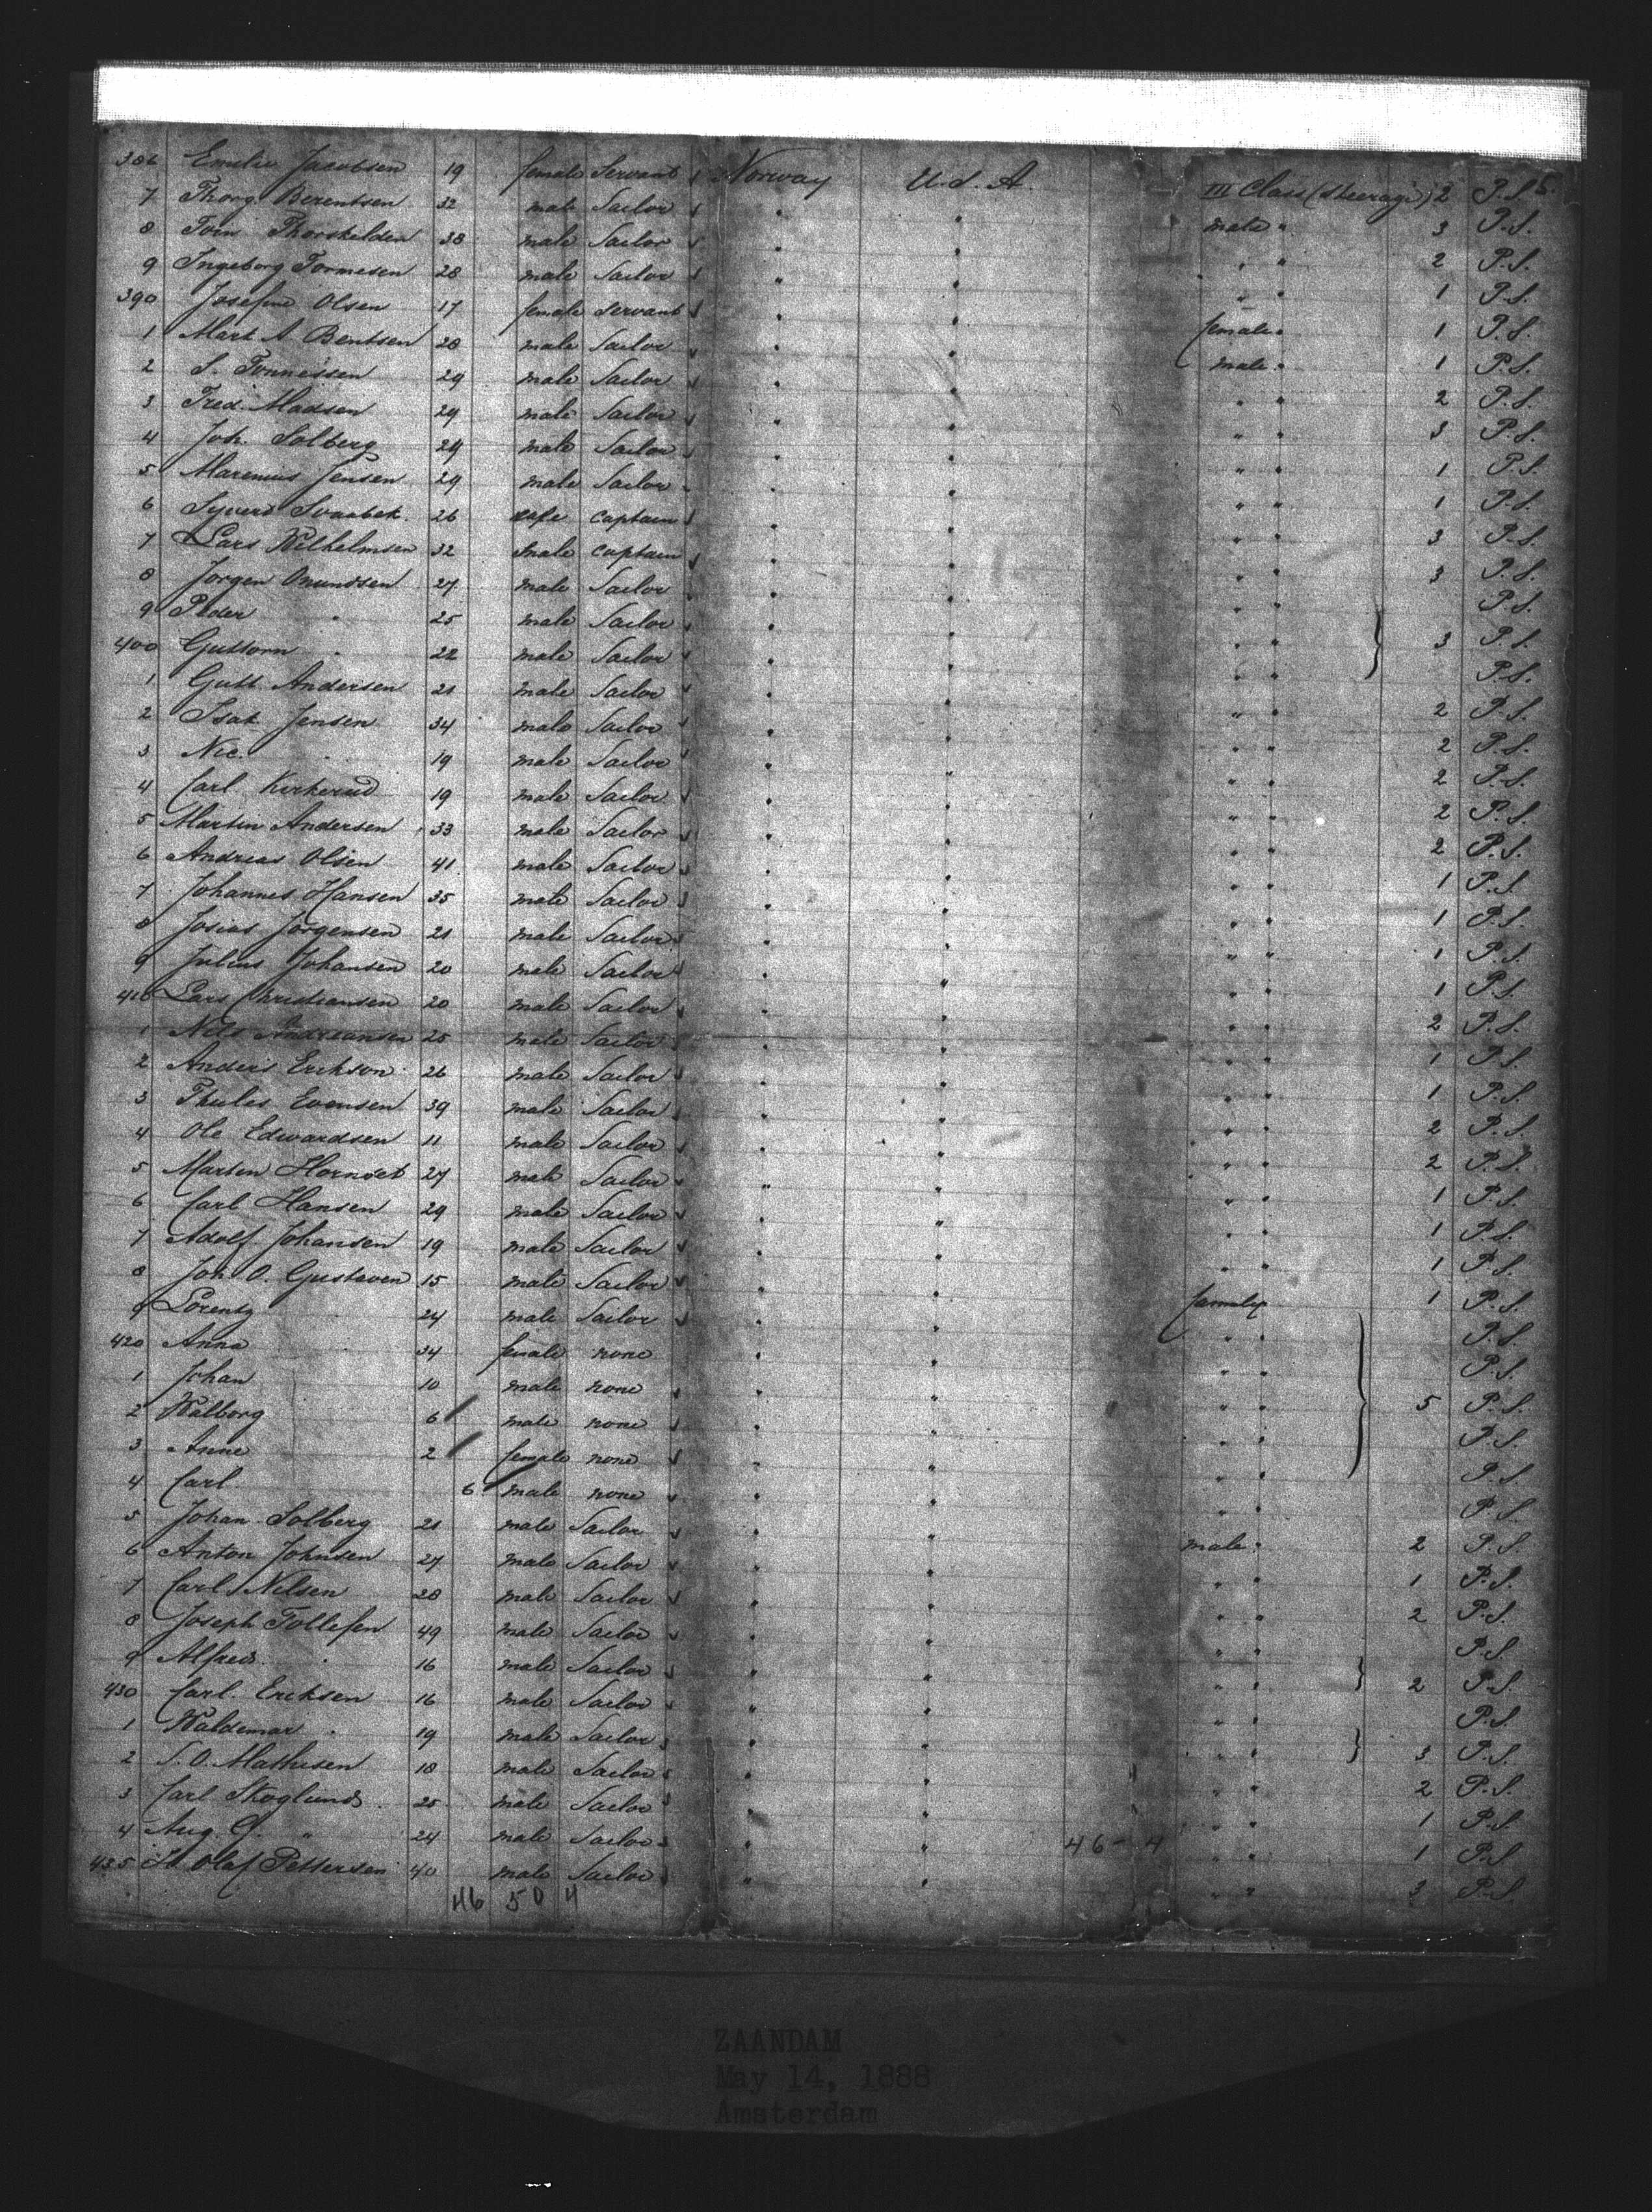 386 Emelie Jacobsen 19 female Servant Norway U.S.A. III Class (Steerage) 2 P.S.
7 Thorg Berentsen 32 male Sailor " " male " 3 P.S.
8 Thorskelden 38 male Sailor " " " " 2 P.S.
9 Ingeborg Tormesen 28 male Sailor " " " " 1 P.S.
390 Josefine Olsen 17 female Servant " " female " 1 P.S.
1 Mart A Bentsen 28 male Sailor " " male " 1 P.S.
2 S. Tonnessen 29 male Sailor " " " " 2 P.S.
3 Fred. Madsen 29 male Sailor " " " " 3 P.S.
4 Joh. Solberg 29 male Sailor " " " " 1 P.S.
5 Marenius Jensen 29 male Sailor " " " " 1 P.S.
6 Syvert 26 Captain " " " " 3 P.S.
7 Lars Wilhelmsen 32 male Captain " " " " 3 P.S.
8 Jorgen Omundsen 27 male Sailor " " " " P.S.
9 Peder " 25 male Sailor " " " " 3 P.S.
400 Guttorm " 22 male Sailor " " " " P.S.
1 Gutt. Andersen 21 male Sailor " " " " 2 P.S.
2 Isak Jensen 34 male Sailor " " " " 2 P.S.
3 Nic. " 19 male Sailor " " " " 2 P.S.
4 Carl Kirkerud 19 male Sailor " " " " 2 P.S.
5 Martin Andersen 33 male Sailor " " " " 2 P.S.
6 Andreas Olsen 41 male Sailor " " " " 1 P.S.
7 Johannes Hansen 35 male Sailor " " " " 1 P.S.
8 Josias Jorgensen 21 male Sailor " " " " 1 P.S.
9 Julius Johansen 20 male Sailor " " " " 1 P.S.
410 Lars Christiansen 20 male Sailor " " " " 2 P.S.
1 Nils Andreansen 25 male Sailor " " " " 1 P.S.
2 Anders Erikson 26 male Sailor " " " " 1 P.S.
3 Thules Evensen 39 male Sailor " " " " 2 P.S.
4 Ole Edwardsen 11 male Sailor " " " " 2 P.S.
5 Marten Hornset 27 male Sailor " " " " 1 P.S.
6 Carl Hansen 29 male Sailor " " " " 1 P.S.
7 Adolf Johansen 19 male Sailor " " " " 1 P.S.
8 Joh. O. Gustaven 15 male Sailor " " family 1 P.S.
9 Lorentz 24 male Sailor " " " " P.S.
420 Anna 34 female none " " " " P.S.
1 Johan 10 male none " " " " 5 P.S.
2 Walborg 6 male none " " " " P.S.
3 Anne 2 female none " " " " P.S.
4 Carl 6 male none " " " " P.S.
5 Johan Solberg 21 male Sailor " " male " 2 P.S.
6 Anton Johnsen 27 male Sailor " " " " 1 P.S.
7 Carl Nilsen 28 male Sailor " " " " 2 P.S.
8 Joseph Tollefsen 49 male Sailor " " " " P.S.
9 Alfred " 16 male Sailor " " " " 2 P.S.
430 Carl. Eriksen 16 male Sailor " " " " P.S.
1 Waldemar " 19 male Sailor " " " " 3 P.S.
2 S. O. Mathisen 18 male Sailor " " " " 2 P.S.
3 Carl Skoglund 25 male Sailor " " " " 1 P.S.
4 Aug. C. " 24 male Sailor " " 46-4 " " 1 P.S.
435 Olaf Pettersen 40 male Sailor " " " " 3 P.S.
46 50 4
ZAANDAM
May 14, 1888
Amsterdam